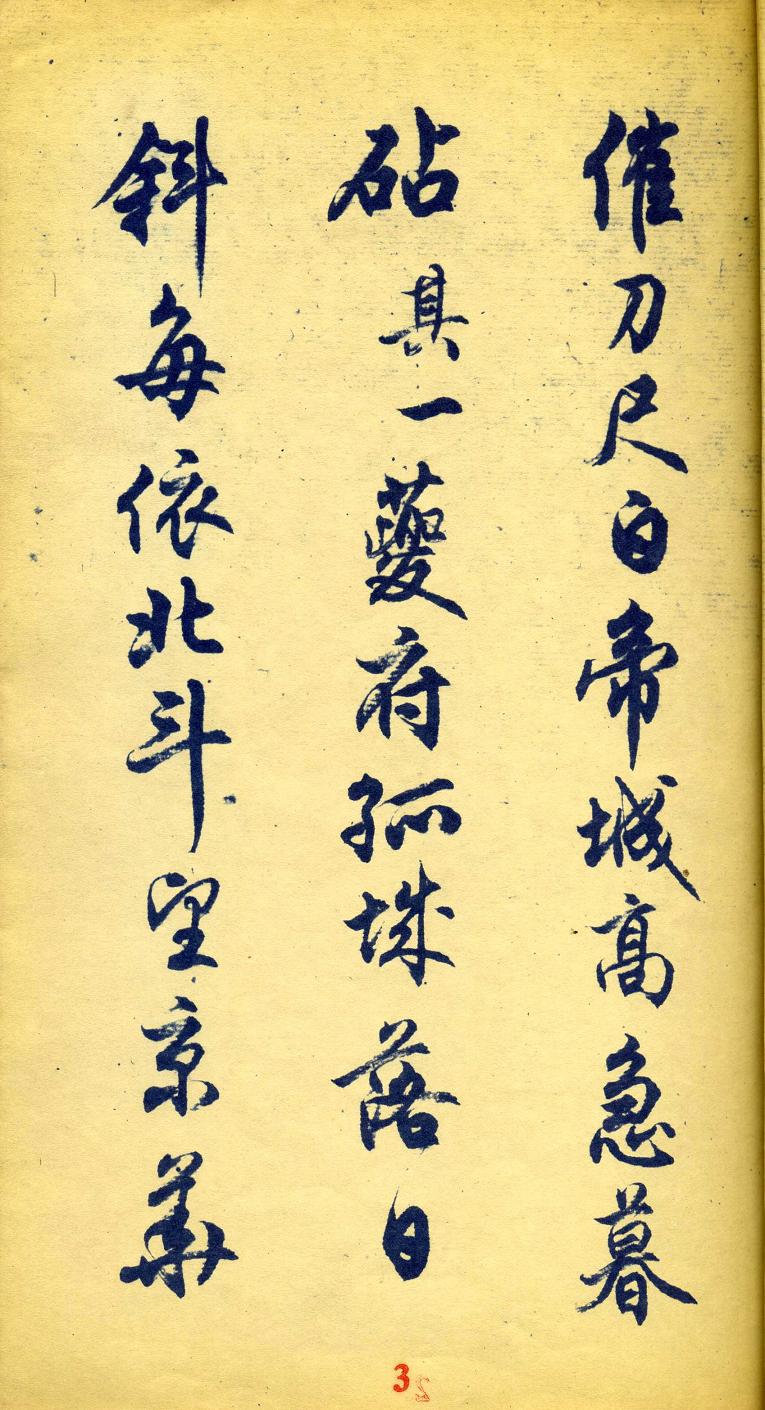 催刀尺白帝城高急暮
砧 其一 夔府孤城落日
斜每依北斗望京華
3